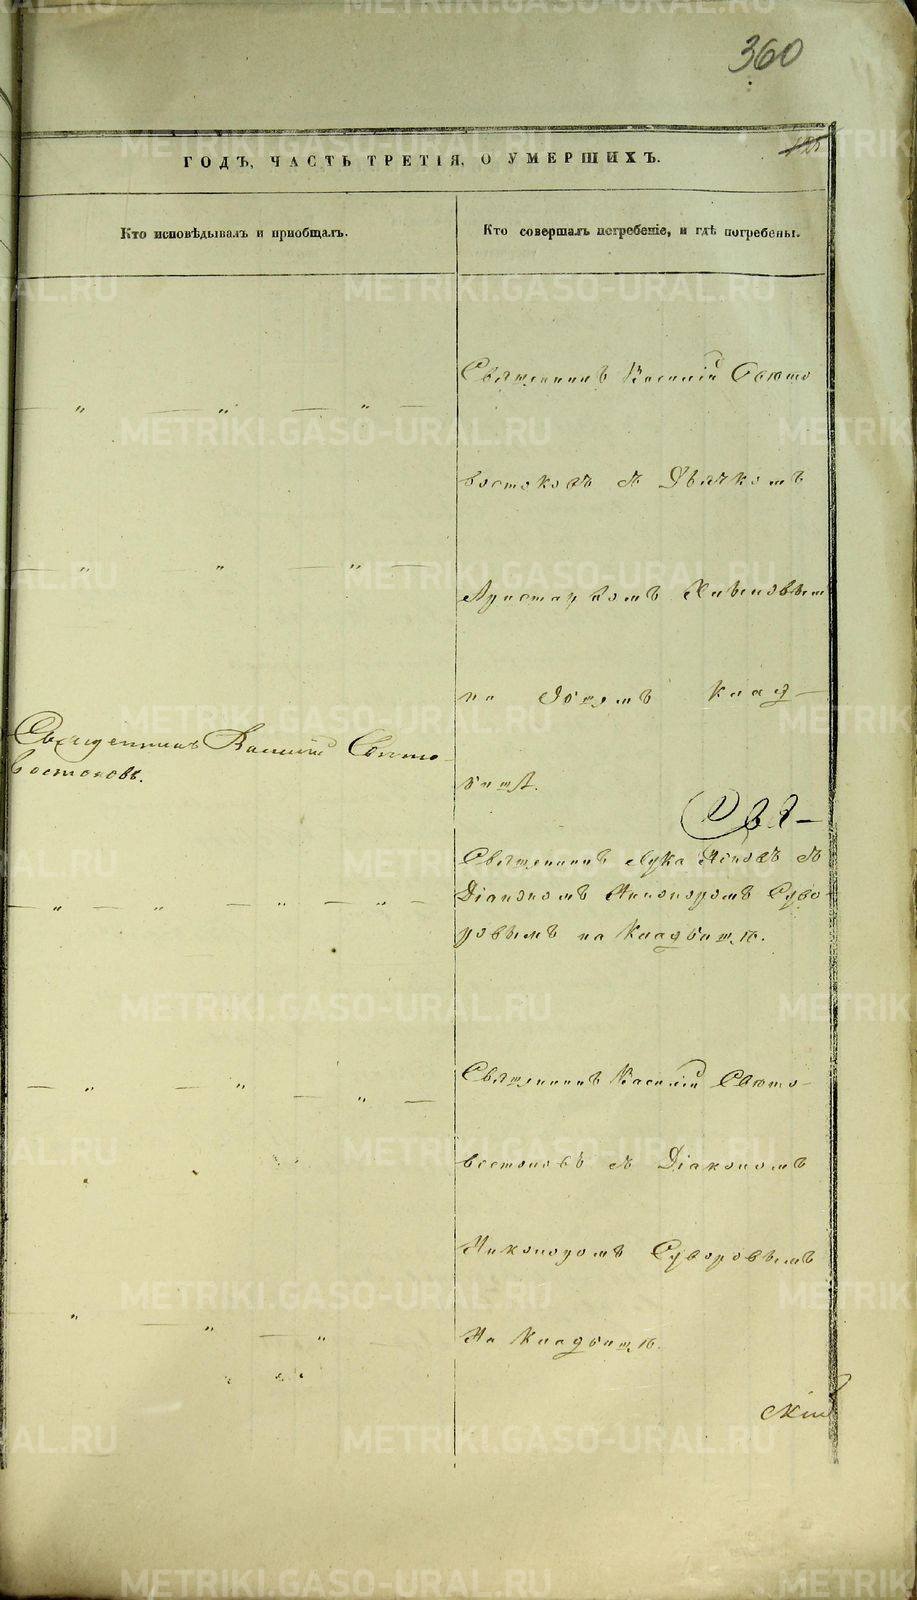 360
125
ГОДЪ, ЧАСТЬ ТРЕТІЯ, О УМЕРШИХЪ.
Кто исповѣдывалъ и пріобщалъ.
Кто совершалъ погребеніе, и гдѣ погребены.
Священникъ Василій Свѣто
востоковъ съ Дьячкомъ
Аристархомъ
на Общемъ Клад-
бищѣ.
Священникъ Василій Свѣто-
востоковъ.
Священникъ Лука Поповъ съ
Діакономъ Никоноромъ Суво-
ровымъ на Кладбищѣ.
Священникъ Василій Свѣто-
востоковъ съ Діакономъ
Никоноромъ Суворовымъ
На Кладбищѣ.
METRIKI.GASO-URAL.RU